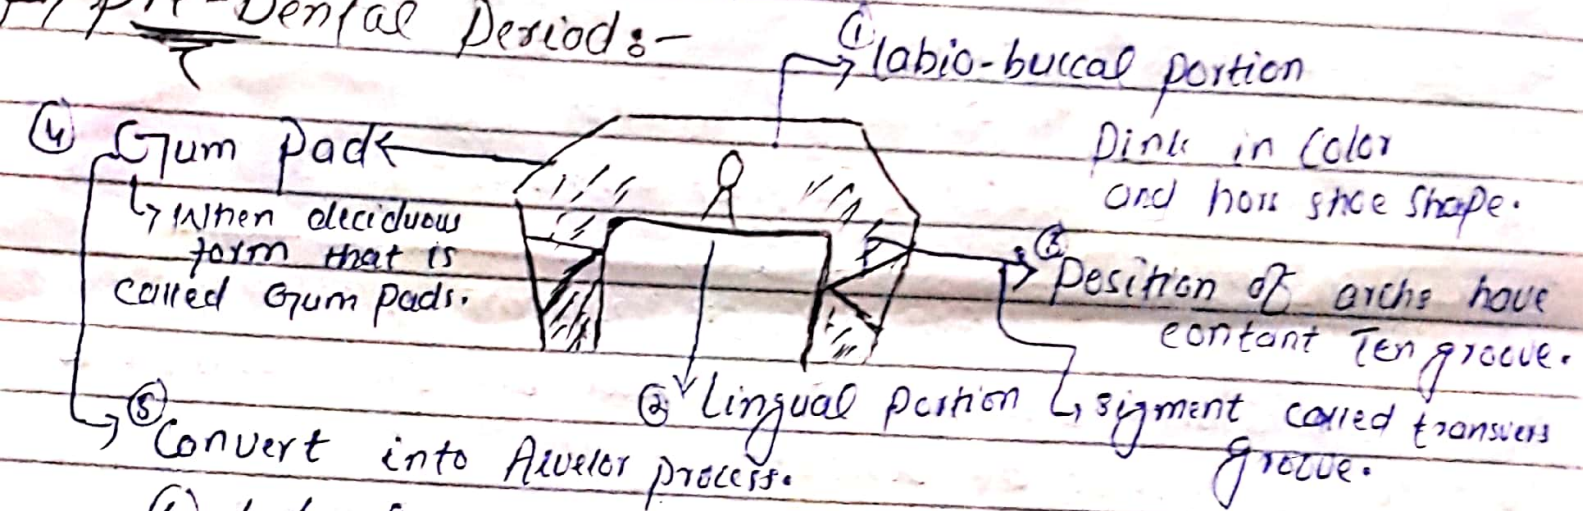 Pre-Dental Period:-
① labio-buccal portion
Pink in Color
and hors shoe shape.
④ Gum Pad
↳ When deciduous
form that is
called Gum Pads.
③ Position of archs have
contant Ten groove.
② Lingual Portion
↳ sigment called transvers
groove.
⑤ Convert into Alvelor process.